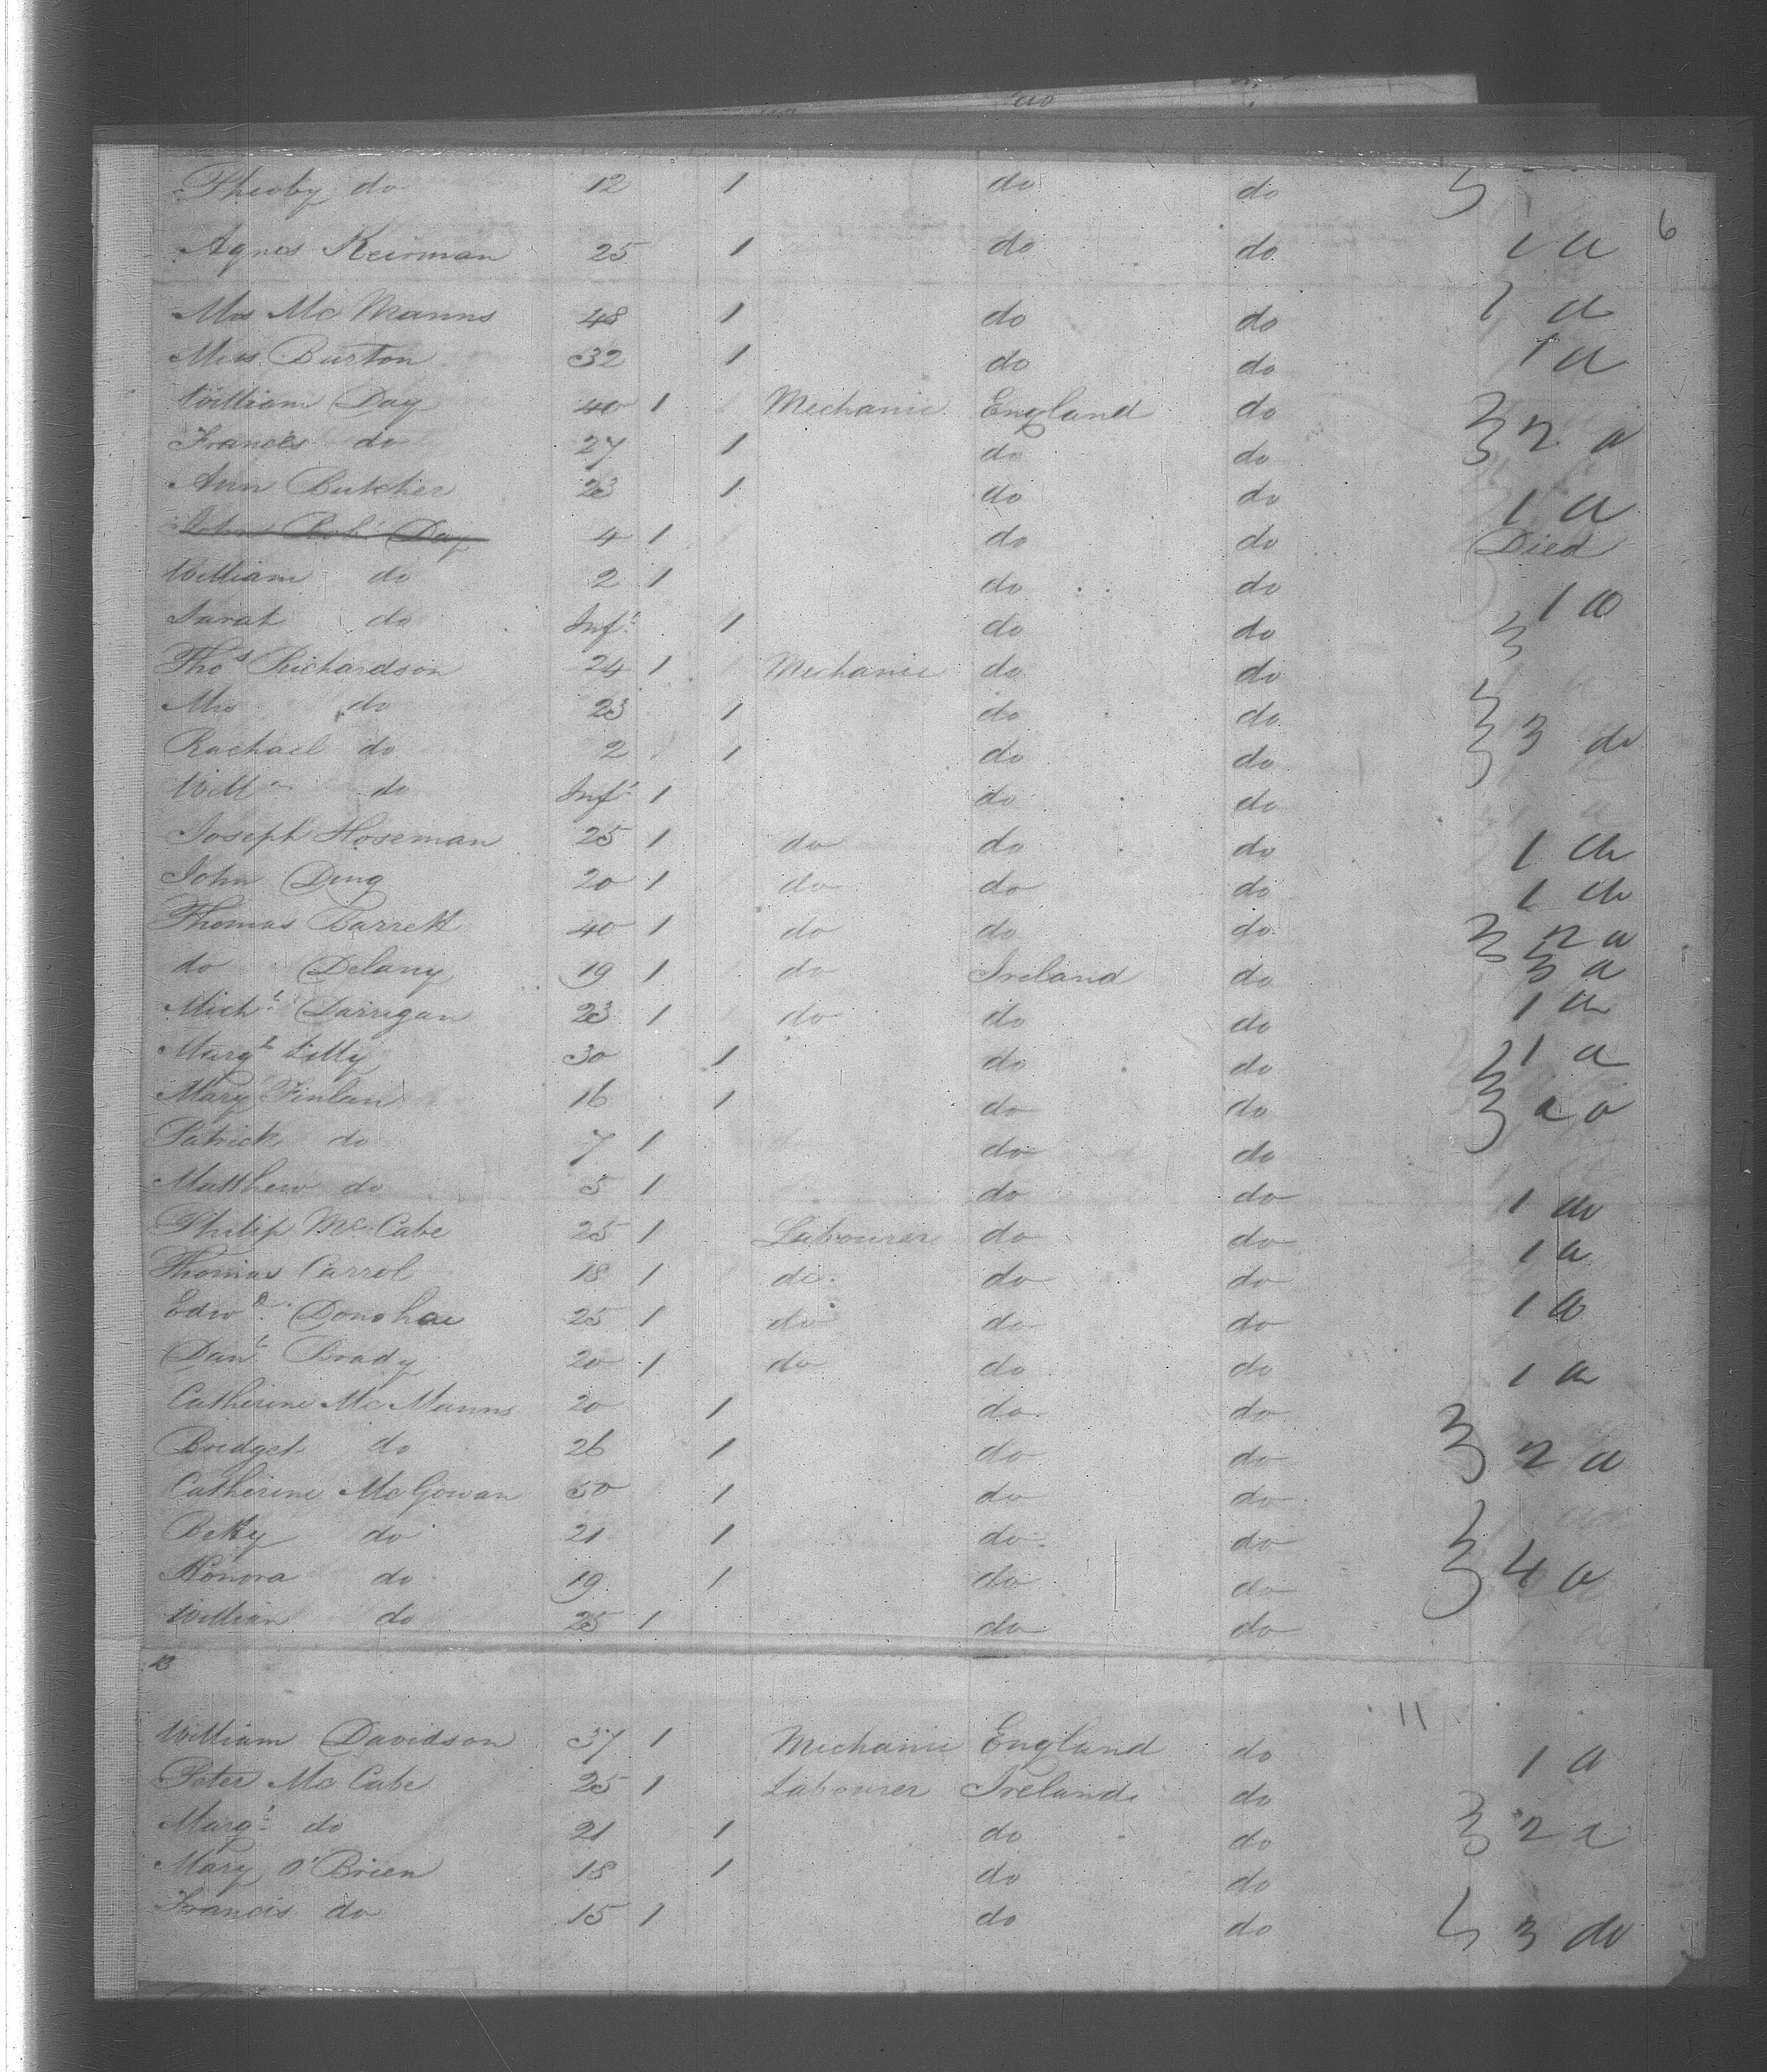 do
Pheoby do 12 1 do do
6
Agnes Keirman 25 1 do do 1 a
Mrs Mc Manns 48 1 do do 1 a
Mrs Burton 32 1 do do 1 a
William Day 40 1 Mechanic England do
Frances do 27 1 do do 2 a
Ann Butcher 23 1 do do 1 a
John Robt Day 4 1 do do Died
William do 2 1 do do 1 a
Sarah do Inft 1 do do
Thos Richardson 24 1 Mechanic do do
Mrs do 23 1 do do
Rachael do 2 1 do do 3 do
Willm do Inft 1 do do
Joseph Hoseman 25 1 do do do 1 a
John Ding 20 1 do do do 1 a
Thomas Barrett 40 1 do do do 2 a
do Delany 19 1 do Ireland do 3 a
Michl Darrigan 23 1 do do do 1 a
Margt Lilly 30 1 do do 1 a
Mary Finlan 16 1 do do a
Patrick do 7 1 do do
Matthew do 5 1 do do
Philip McCabe 25 1 Labourer do do 1 do
Thomas Carrol 18 1 do do do 1 a
Edwd Donohae 25 1 do do do 1 a
Danl Brady 20 1 do do do 1 a
Catherine Mc Manns 20 1 do do
Bridget do 26 1 do do 2 a
Catherine McGowan 50 1 do do
Betty do 21 1 do do
Honora do 19 1 do do 4 a
William do 25 1 do do
11
William Davidson 37 1 Mechanic England do 1 a
Peter Mc Cabe 25 1 Labourer Ireland do
Margt do 21 1 do do 2 a
Mary O'Brien 18 1 do do
Francis do 15 1 do do 3 do